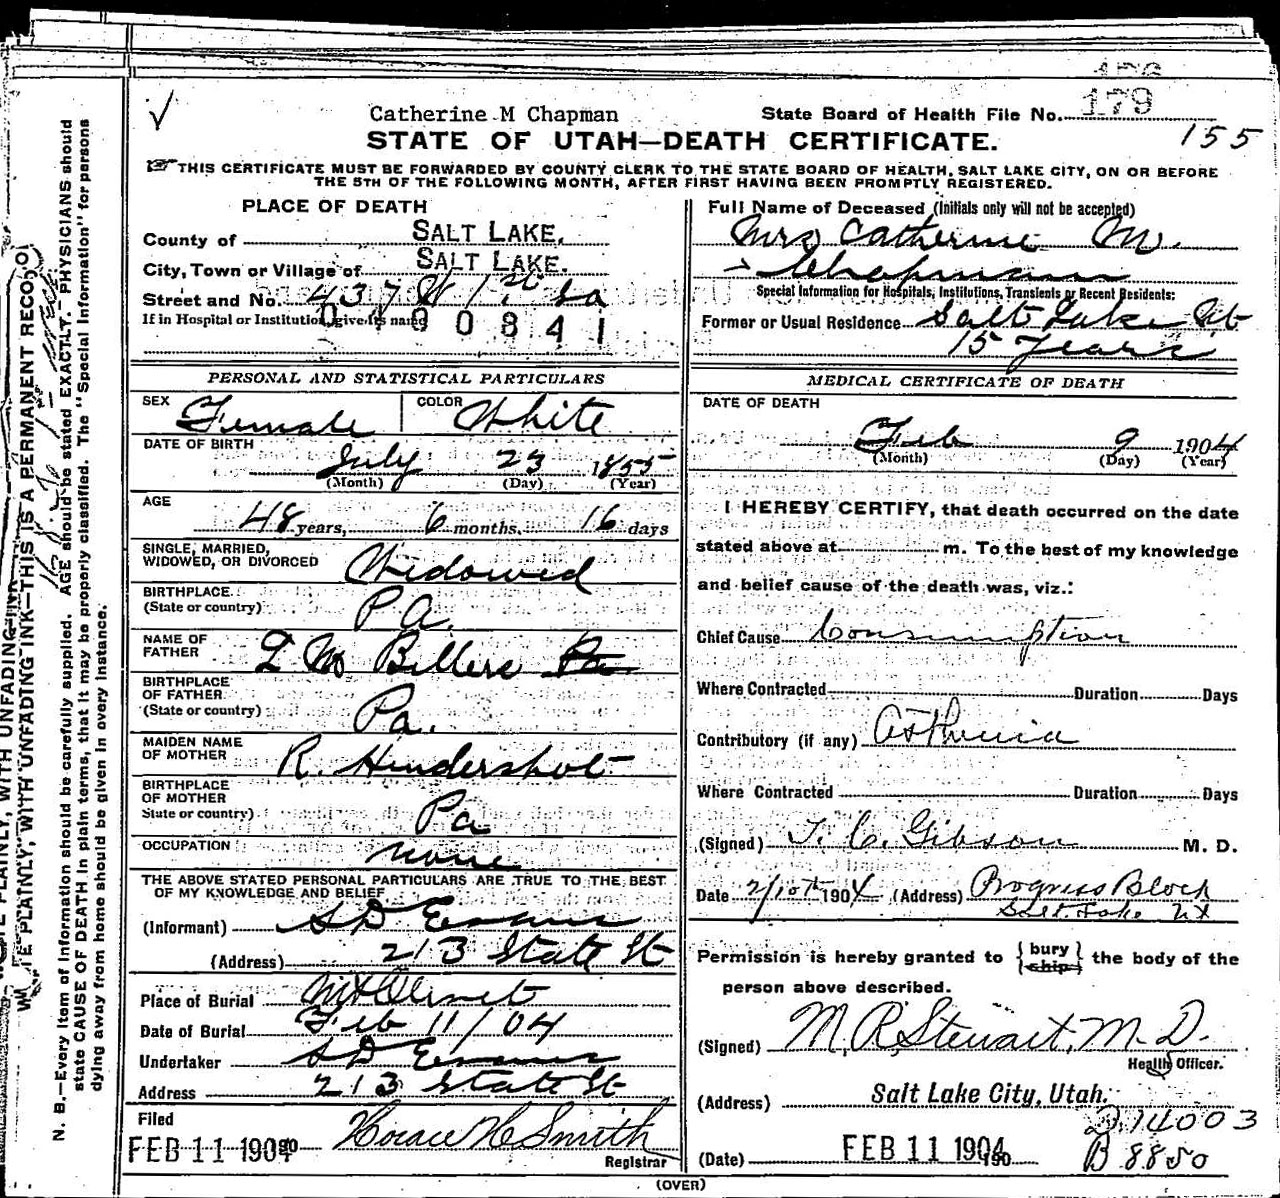 179
Catherine M Chapman
State Board of Health File No.
155
STATE OF UTAH—DEATH CERTIFICATE.
THIS CERTIFICATE MUST BE FORWARDED BY COUNTY CLERK TO THE STATE BOARD OF HEALTH, SALT LAKE CITY, ON OR BEFORE
THE 5TH OF THE FOLLOWING MONTH, AFTER FIRST HAVING BEEN PROMPTLY REGISTERED.
PLACE OF DEATH
County of SALT LAKE.
City, Town or Village of SALT LAKE.
Street and No. 437 W 1st So
If in Hospital or Institution, give its name
0400841
Full Name of Deceased (Initials only will not be accepted)
Mrs Catherine M.
Chapman
Special Information for Hospitals, Institutions, Transients or Recent Residents:
Former or Usual Residence Salt Lake Ut
15 Years
PERSONAL AND STATISTICAL PARTICULARS
SEX Female COLOR White
DATE OF BIRTH
July 23 1855
(Month) (Day) (Year)
AGE
48 years, 6 months, 16 days
SINGLE, MARRIED,
WIDOWED, OR DIVORCED Widowed
BIRTHPLACE
(State or country) PA.
NAME OF
FATHER Billers Pa
BIRTHPLACE
OF FATHER
(State or country) Pa.
MAIDEN NAME
OF MOTHER R. Hendershot
BIRTHPLACE
OF MOTHER
State or country) Pa
OCCUPATION none
THE ABOVE STATED PERSONAL PARTICULARS ARE TRUE TO THE BEST
OF MY KNOWLEDGE AND BELIEF
(Informant) S D Evans
(Address) 213 State St
Place of Burial Mt Olivet
Date of Burial Feb 11/04
Undertaker S D Evans
Address 213 State St
Filed
FEB 11 1904 190 Horace H Smith
Registrar
MEDICAL CERTIFICATE OF DEATH
DATE OF DEATH
Feb 9 1904
(Month) (Day) (Year)
I HEREBY CERTIFY, that death occurred on the date
stated above at m. To the best of my knowledge
and belief cause of the death was, viz.:
Chief Cause Consumption
Where Contracted Duration Days
Contributory (if any) Asthenia
Where Contracted Duration Days
(Signed) T. C. Gibson M. D.
Date 2/10th 1904 (Address) Progress Block
Salt Lake Ut
Permission is hereby granted to { bury ship } the body of the
person above described.
(Signed) M. R. Stewart, M. D.
Health Officer.
(Address) Salt Lake City, Utah.
D.14003
(Date) FEB 11 1904 190
B 8850
(OVER)
WRITE PLAINLY, WITH UNFADING INK—THIS IS A PERMANENT RECORD
N. B.—Every item of information should be carefully supplied. AGE should be stated EXACTLY. PHYSICIANS should
state CAUSE OF DEATH in plain terms, that it may be properly classified. The "Special Information" for persons
dying away from home should be given in every instance.